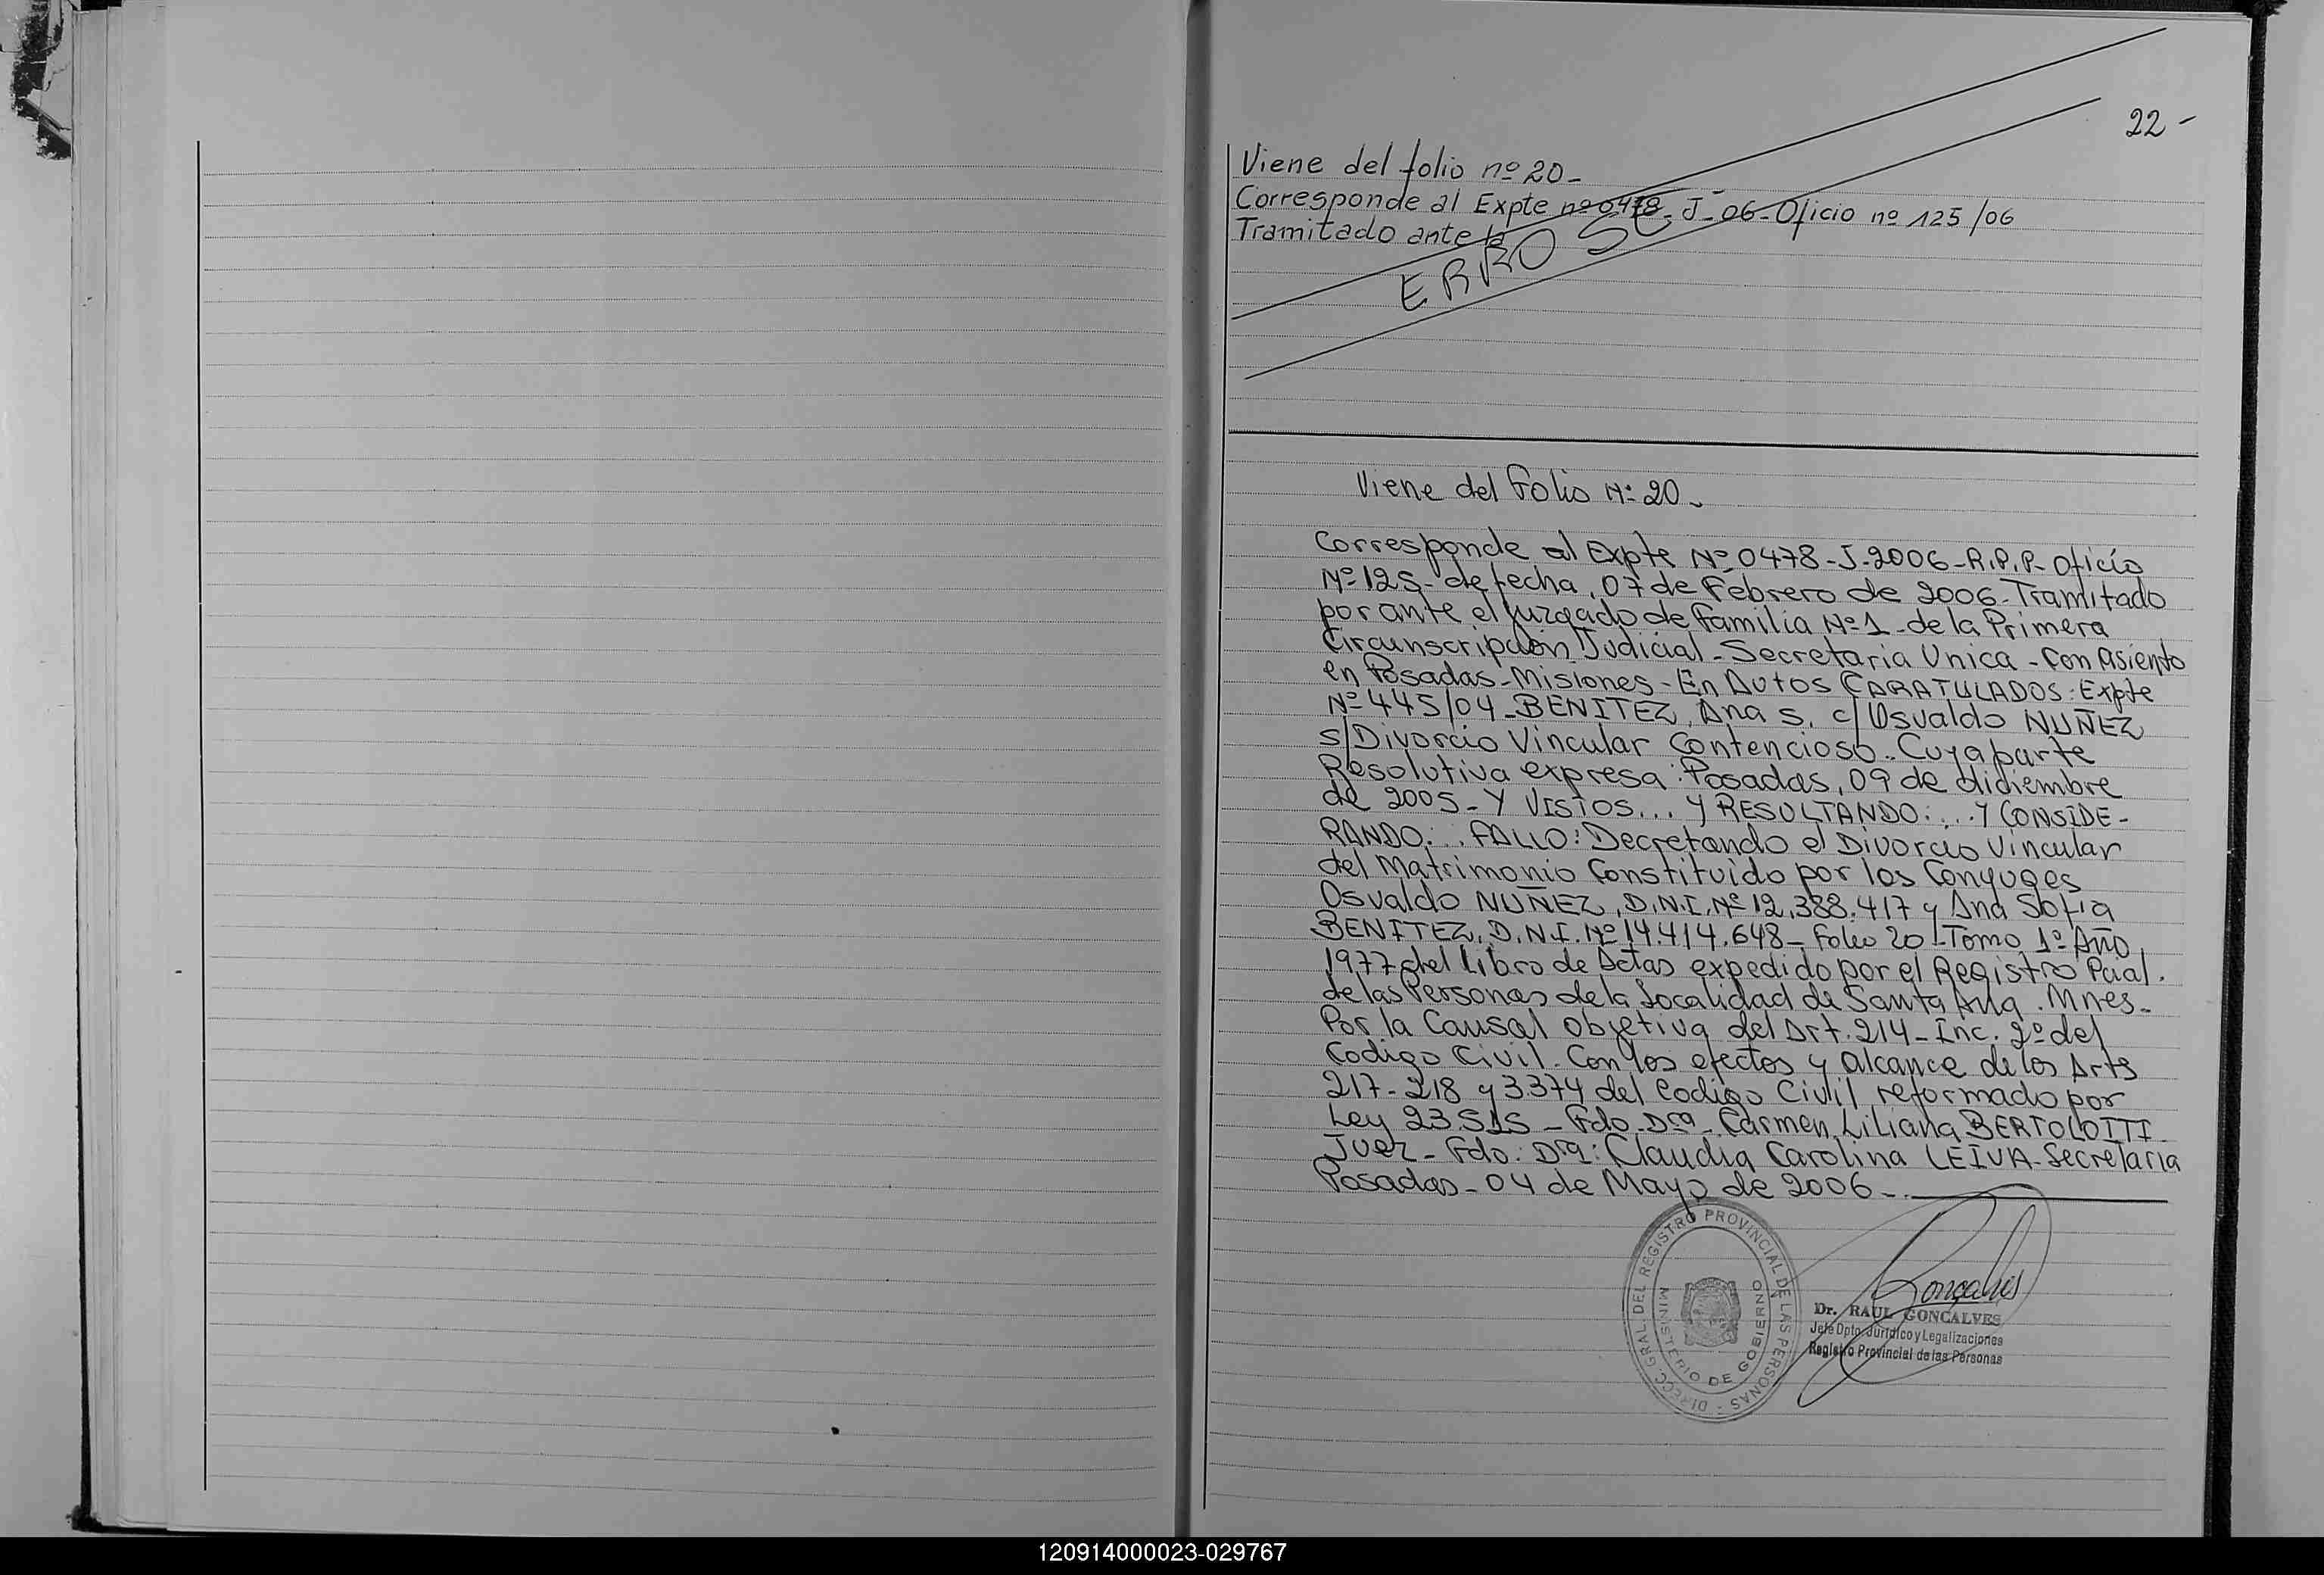 22-
Viene del folio nº 20-
Corresponde al Expte nº 0478-J-06-Oficio nº 125/06
Tramitado ante la
ERROSE
Viene del Folio Nº 20-
Corresponde al Expte Nº 0478-J-2006-R.P.P-Oficio
Nº 125-de fecha, 07 de Febrero de 2006-Tramitado
por ante el Juzgado de Familia Nº 1-de la Primera
Circunscripción Judicial-Secretaria Unica-Con Asiento
en Posadas-Misiones-En Autos CARATULADOS: Expte
Nº 445/04-BENITEZ, Ana S. c/ Osvaldo NUÑEZ
s/Divorcio Vincular Contencioso. Cuya parte
Resolutiva expresa: Posadas, 09 de diciembre
de 2005-Y VISTOS... Y RESULTANDO:... Y CONSIDE-
RANDO:... FALLO: Decretando el Divorcio Vincular
del Matrimonio Constituido por los Conyuges
Osvaldo NUÑEZ, D.N.I. Nº 12.388.417 y Ana Sofia
BENITEZ, D.N.I. Nº 14.414.648-Folio 20-Tomo 1º-Año
1977 del Libro de Actas expedido por el Registro Pcial.
de las Personas de la Localidad de Santa Ana. Mnes-
Por la Causal objetiva del Art. 214-Inc. 2º del
Codigo Civil. Con los efectos y alcance de los Arts
217-218 y 3.374 del Codigo Civil reformado por
Ley 23.515-Fdo.-Dra-Carmen Liliana BERTOLOTTI-
Juez-Fdo: Dra: Claudia Carolina LEIVA-Secretaria
Posadas-04 de Mayo de 2006-.
DIRECC. GRAL. DEL REGISTRO PROVINCIAL DE LAS PERSONAS -
MINISTERIO DE GOBIERNO
Goncalves
Dr. RAUL GONCALVES
Jefe Dpto. Juridico y Legalizaciones
Registro Provincial de las Personas
120914000023-029767